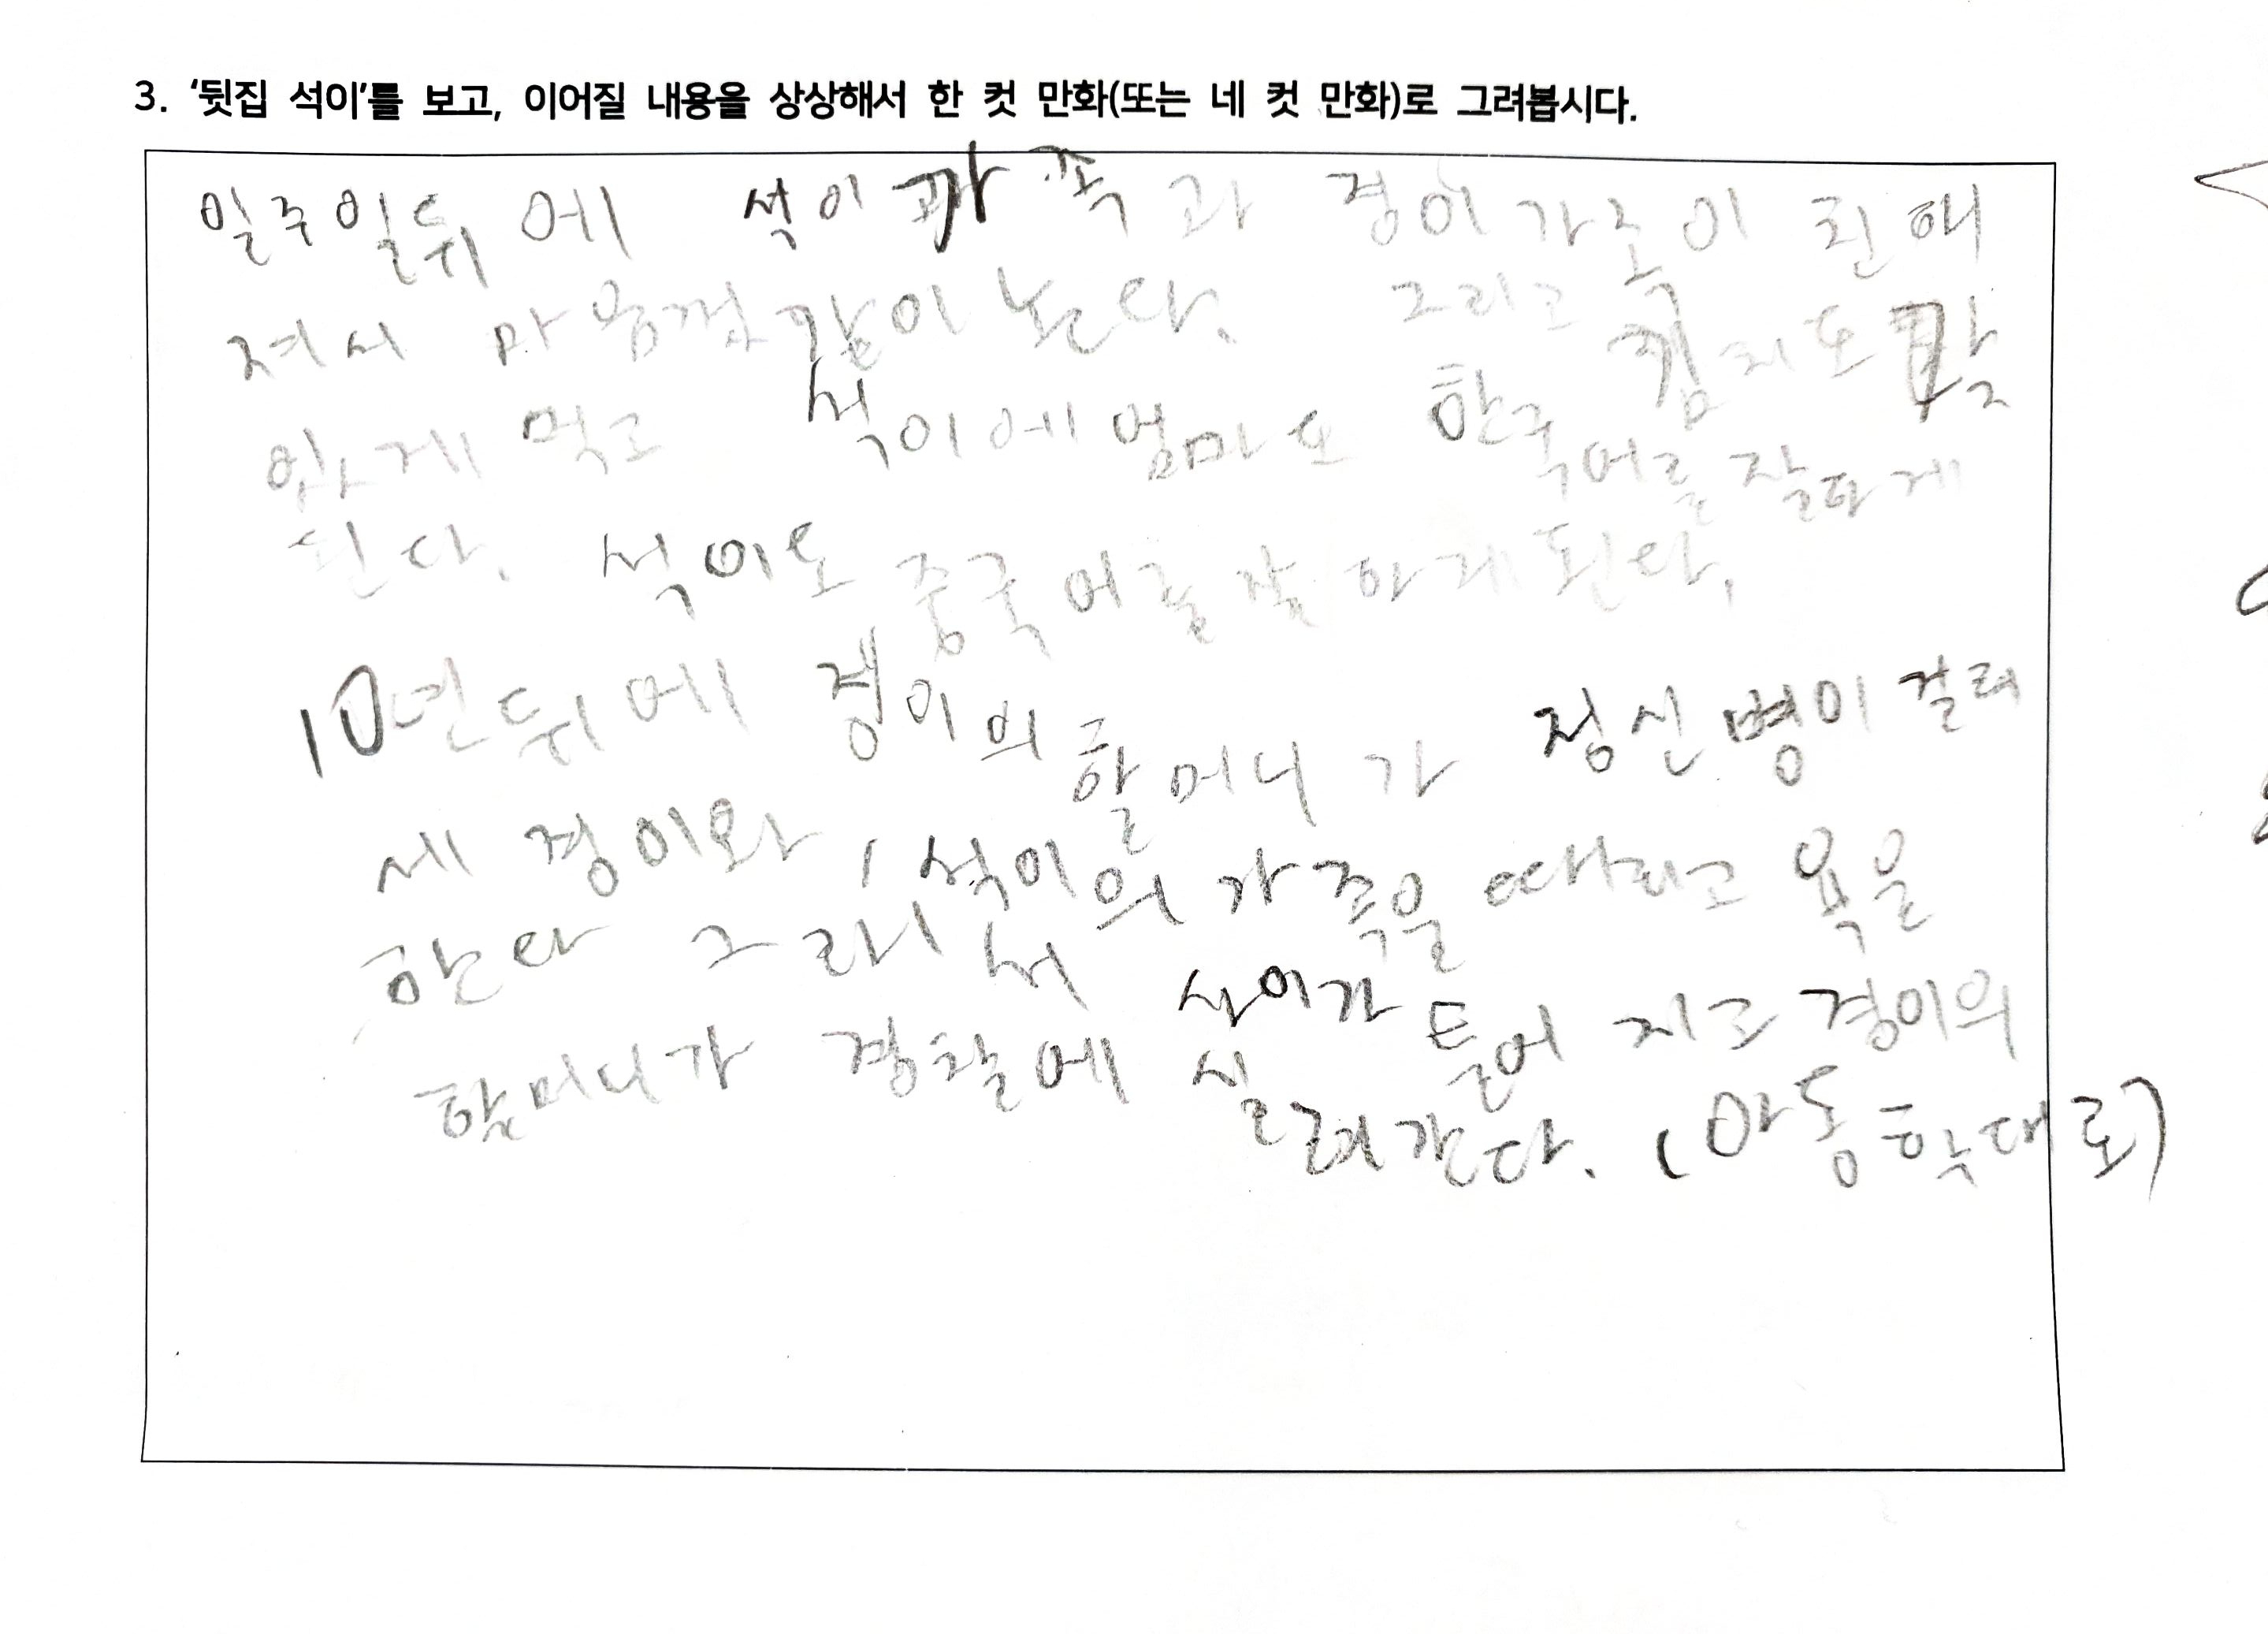 3. '뒷집 석이'를 보고, 이어질 내용을 상상해서 한 컷 만화(또는 네 컷 만화)로 그려봅시다.
일주일뒤에 석이 가족과 경이가족이 친해
져서 마음껏 같이 논다. 그리고 김치도 맛
있게 먹고 석이에 엄마도 한국어를 잘하게
된다. 석이도 중국어를 잘하게된다.
10년뒤에 경이의 할머니가 정신병이 걸려
세 경이와, 석이의 가족을 때리고 욕을
한다 그래서 사이가 틀어지고 경이의
할머니가 경찰에 실려간다. (아동학대로)